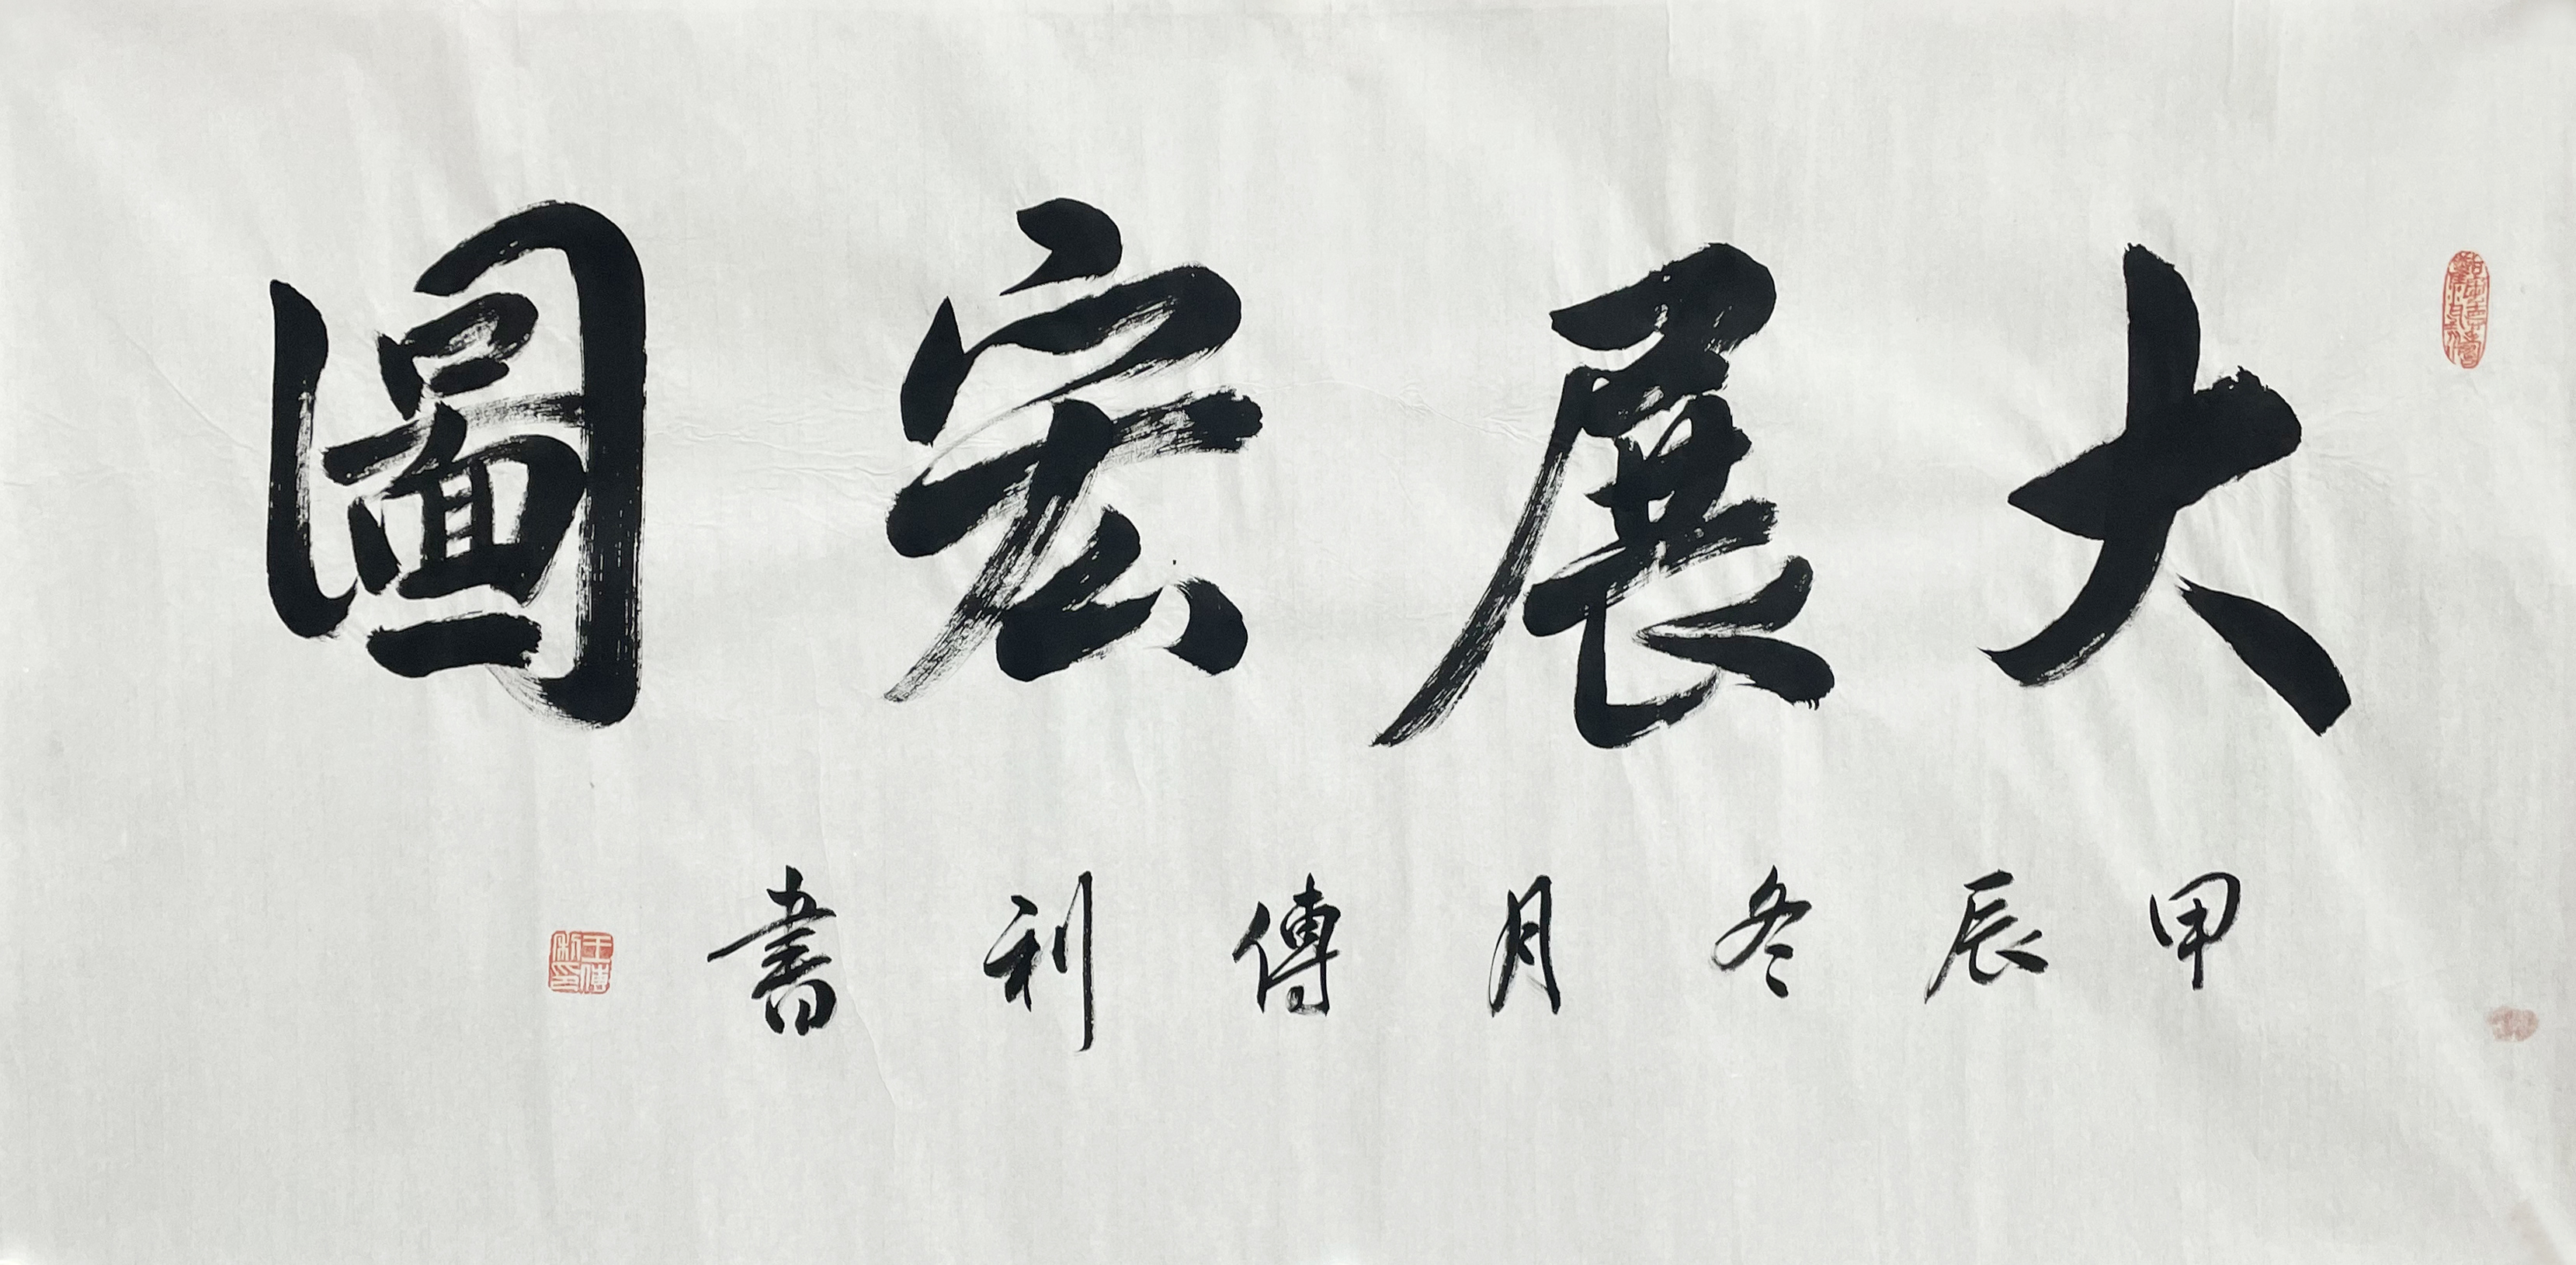 大展宏圖
甲辰冬月傳利書
王傳利印